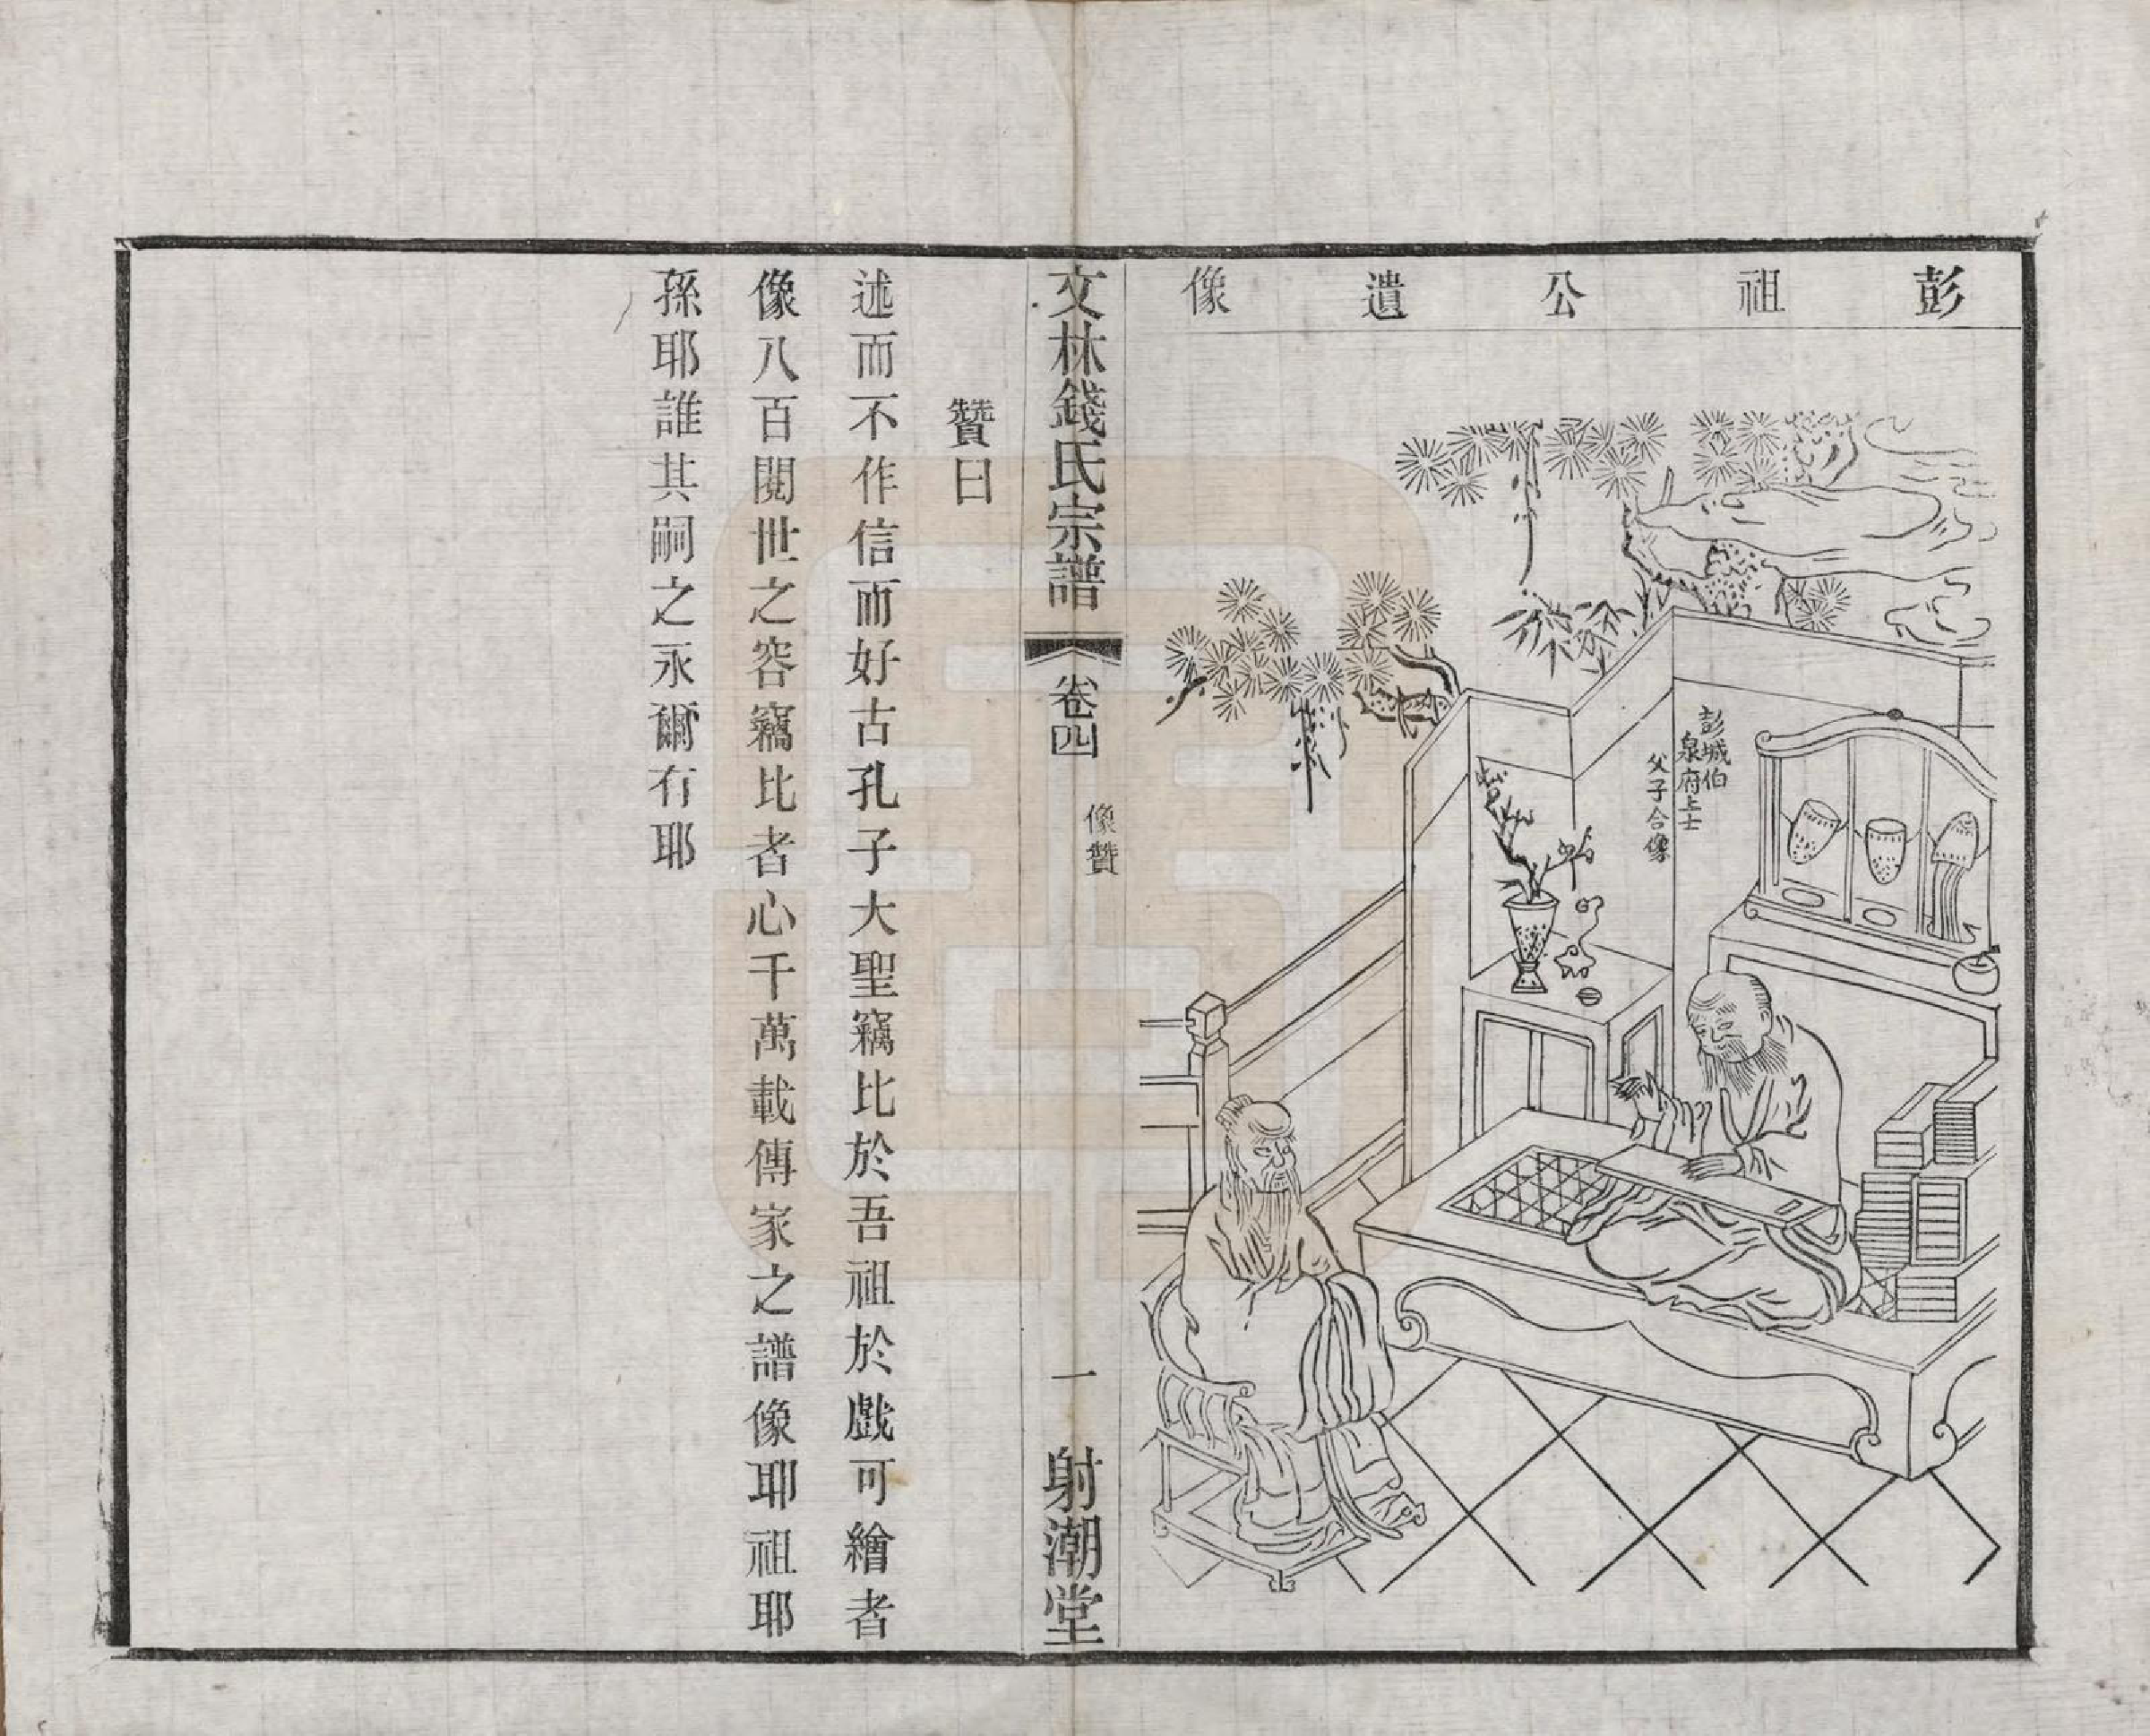 彭祖公遺像
彭城伯
泉府上士
父子合像
文林錢氏宗譜
卷四
像贊
一
射潮堂
贊曰
述而不作信而好古孔子大聖竊比於吾祖於戲可繪者
像八百閱世之容竊比者心千萬載傳家之譜像耶祖耶
孫耶誰其嗣之永爾有耶